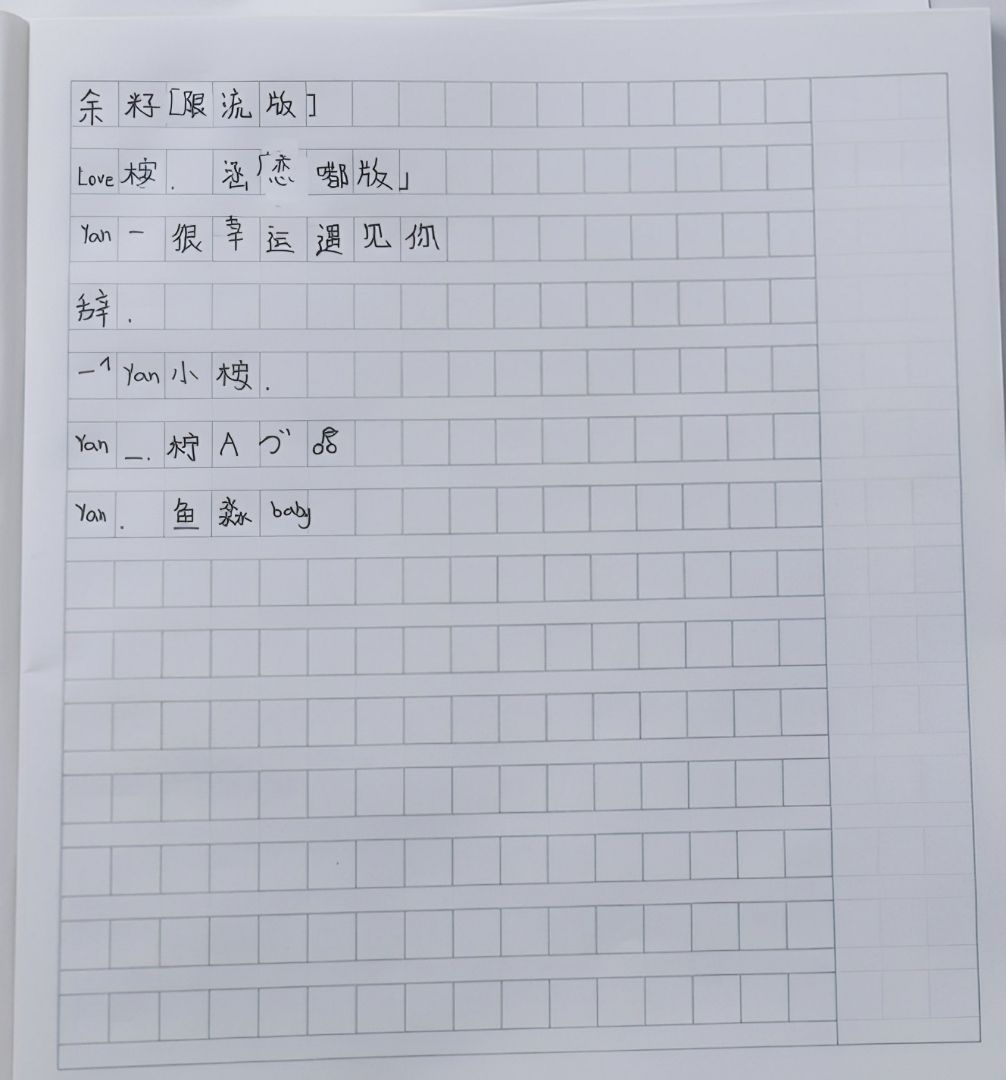 余籽[限流版]
Love桉. 涵「恋嘟版」
Yan一很幸运遇见你
辞.
一个Yan小桉.
Yan_.柠Aづ
Yan. 鱼淼baby